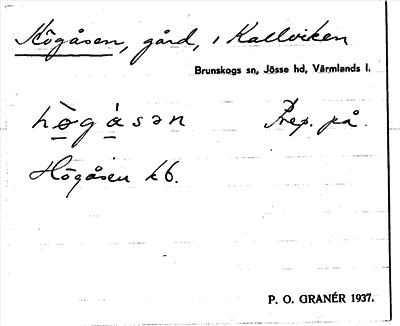 Högåsen, gård, i Kallviken
Brunskogs sn, Jösse hd, Värmlands l.
hògásən Prep. på.
Högåsen kb.
P. O. GRANÉR 1937.